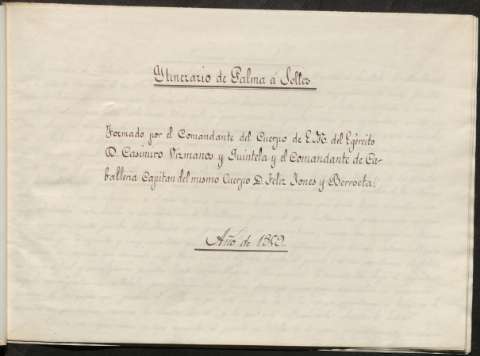 Ytinerario de Palma a Soller
Formado por el Comandante del Cuerpo de E. M. del Egército
D. Casimiro Vizmanos y Quintela y el Comandante de Ca-
balleria Capitan del mismo Cuerpo D. Feliz Jones y Berroeta.
Año de